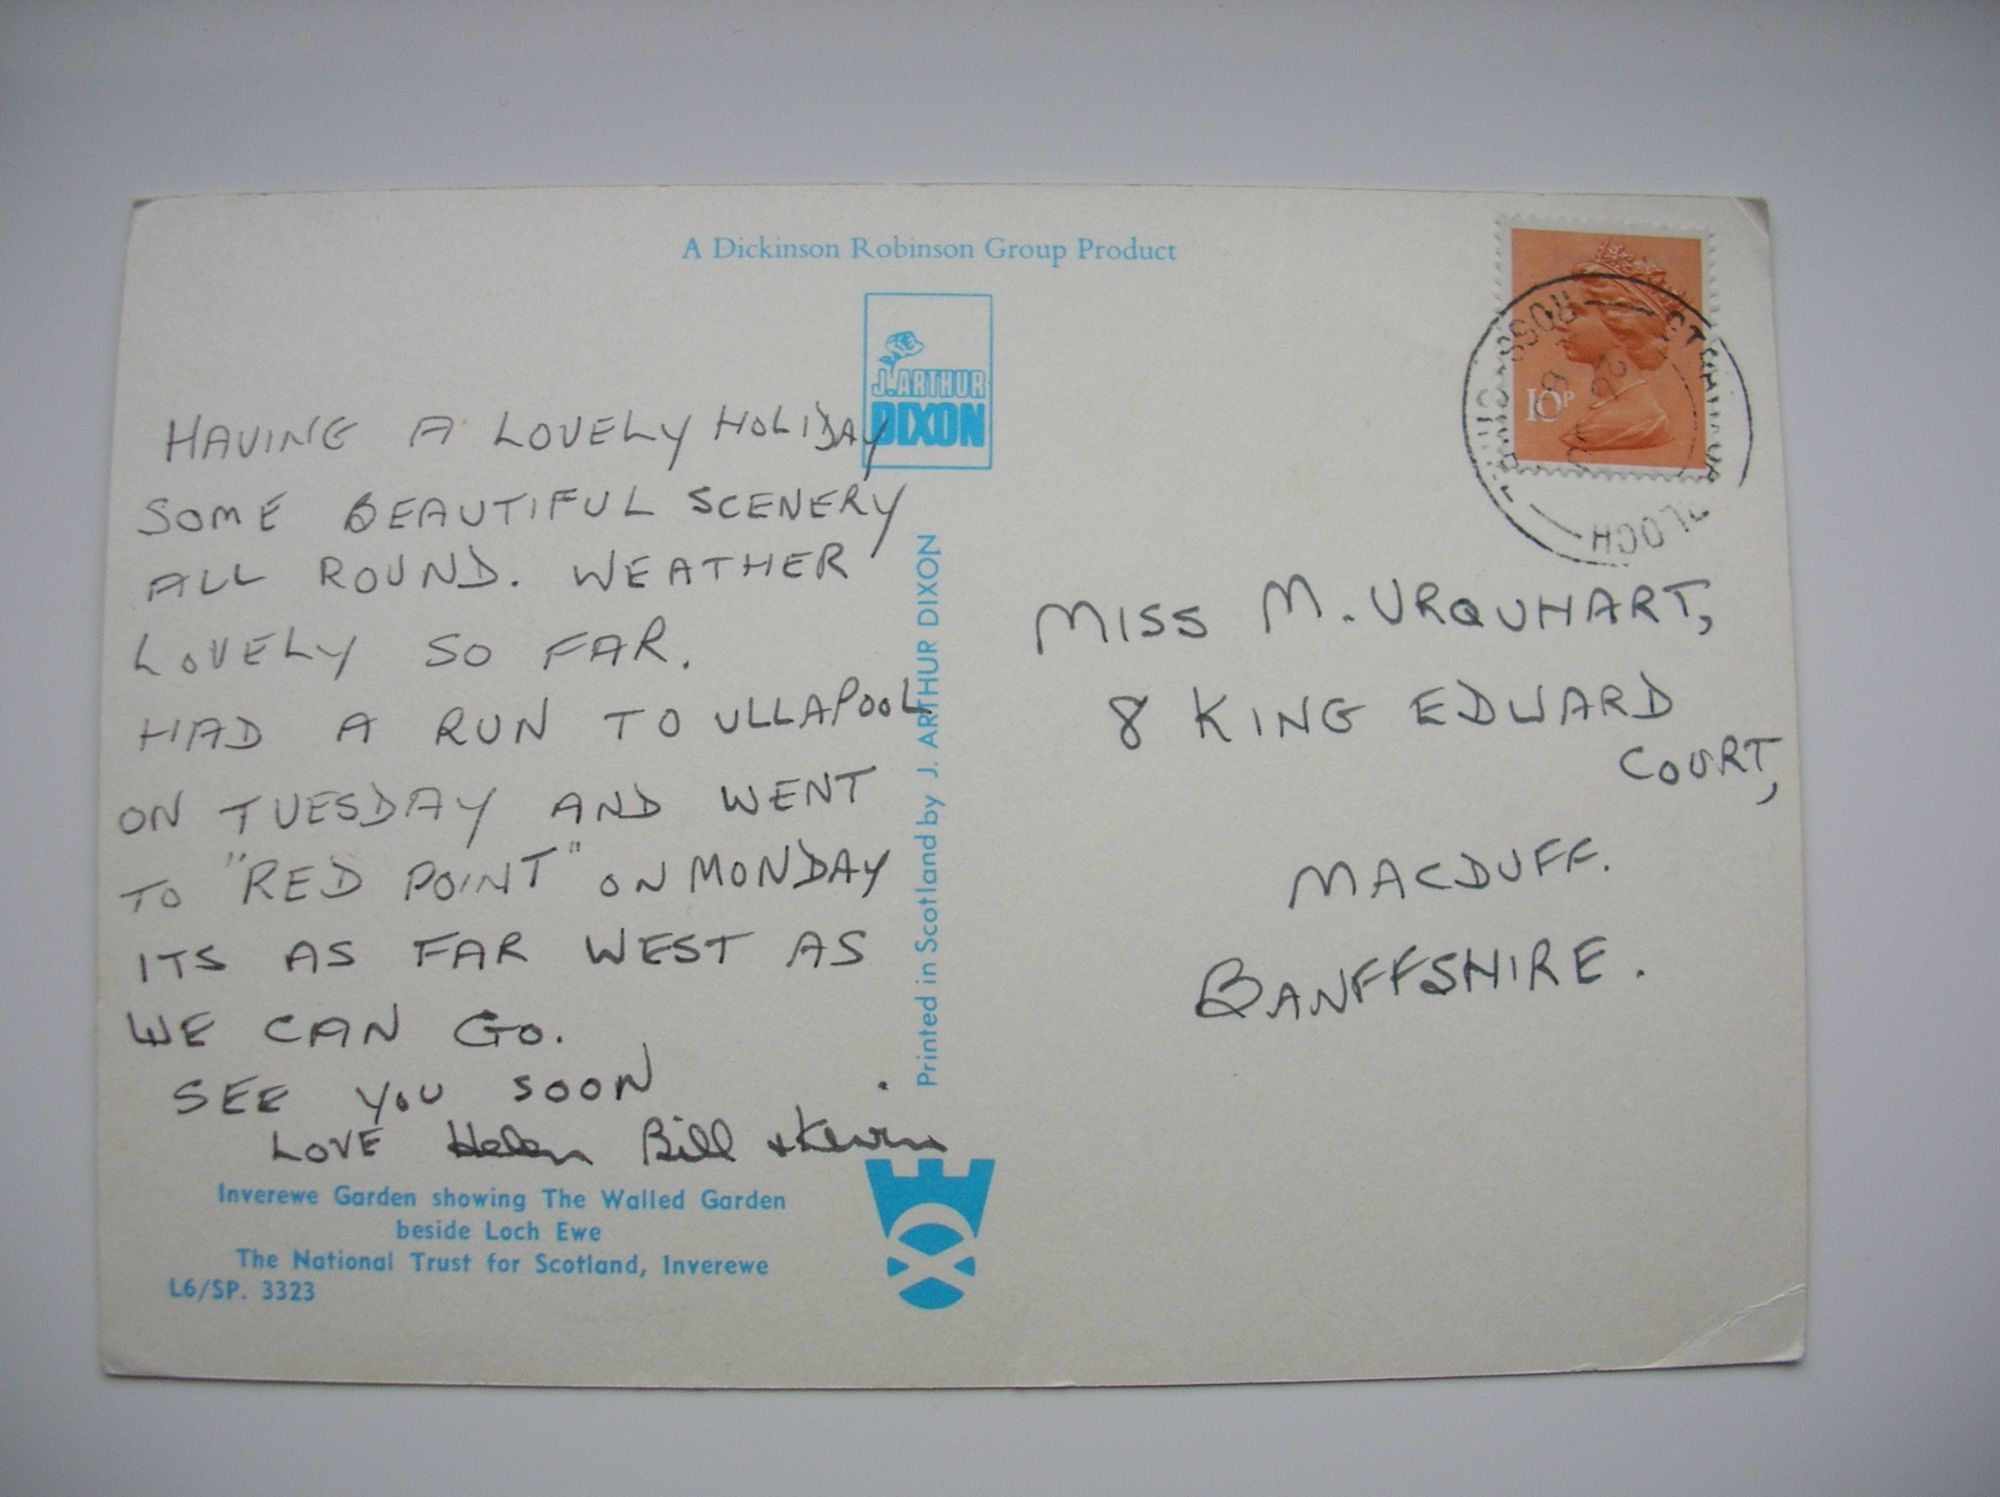 A Dickinson Robinson Group Product
J. ARTHUR
DIXON
HAVING A LOVELY HOLIDAY
SOME BEAUTIFUL SCENERY
ALL ROUND. WEATHER
LOVELY SO FAR.
HAD A RUN TO ULLAPOOL
ON TUESDAY AND WENT
TO "RED POINT" ON MONDAY
ITS AS FAR WEST AS
WE CAN GO.
SEE YOU SOON
LOVE Helen Bill + Kevin
Inverewe Garden showing The Walled Garden
beside Loch Ewe
The National Trust for Scotland, Inverewe
L6/SP. 3323
Printed in Scotland by J. ARTHUR DIXON
10P
ROSS
LOCH
MISS M. URQUHART,
8 KING EDWARD
COURT,
MACDUFF.
BANFFSHIRE.